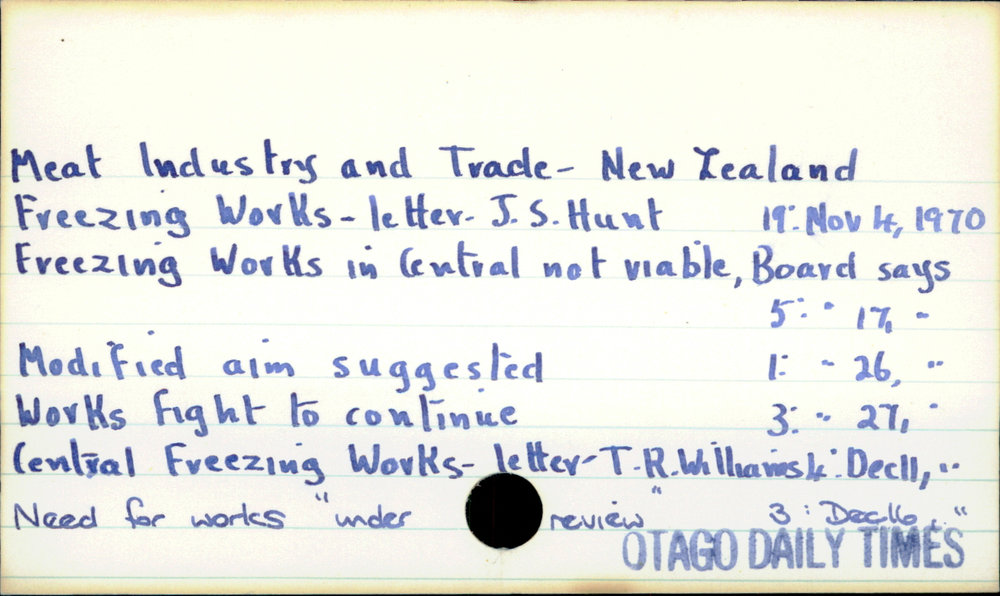 Meat Industry and Trade - New Zealand
Freezing Works - letter - J.S. Hunt 19: Nov 4, 1970
Freezing Works in Central not viable, Board says
5: " 17, "
Modified aim suggested 1: " 26, "
Works fight to continue 3: " 27, "
Central Freezing Works - letter - T.R. Williams 4: Dec 11, "
Need for works "under review" 3: Dec 16, "
OTAGO DAILY TIMES